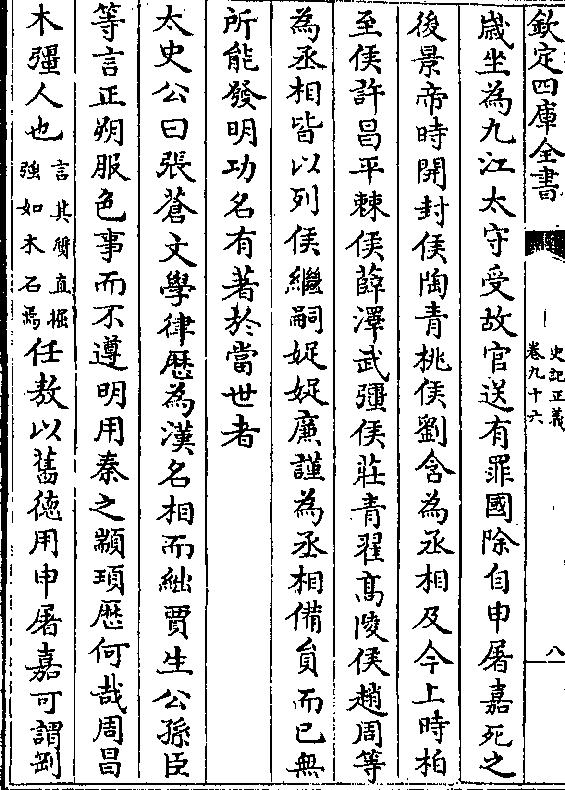 欽定四庫全書
史記正義
卷九十六
八
歲坐為九江太守受故官送有罪國除自申屠嘉死之
後景帝時開封侯陶青桃侯劉含為丞相及今上時柏
至侯許昌平棘侯薛澤武彊侯莊青翟髙陵侯趙周等
為丞相皆以列侯繼嗣娖娖亷謹為丞相備員而已無
所能發明功名有著於當世者
太史公曰張蒼文學律厯為漢名相而絀賈生公孫臣
等言正朔服色事而不遵明用秦之顓頊厯何哉周昌
木彊人也言其質直掘強如木石焉任敖以舊徳用申屠嘉可謂剛